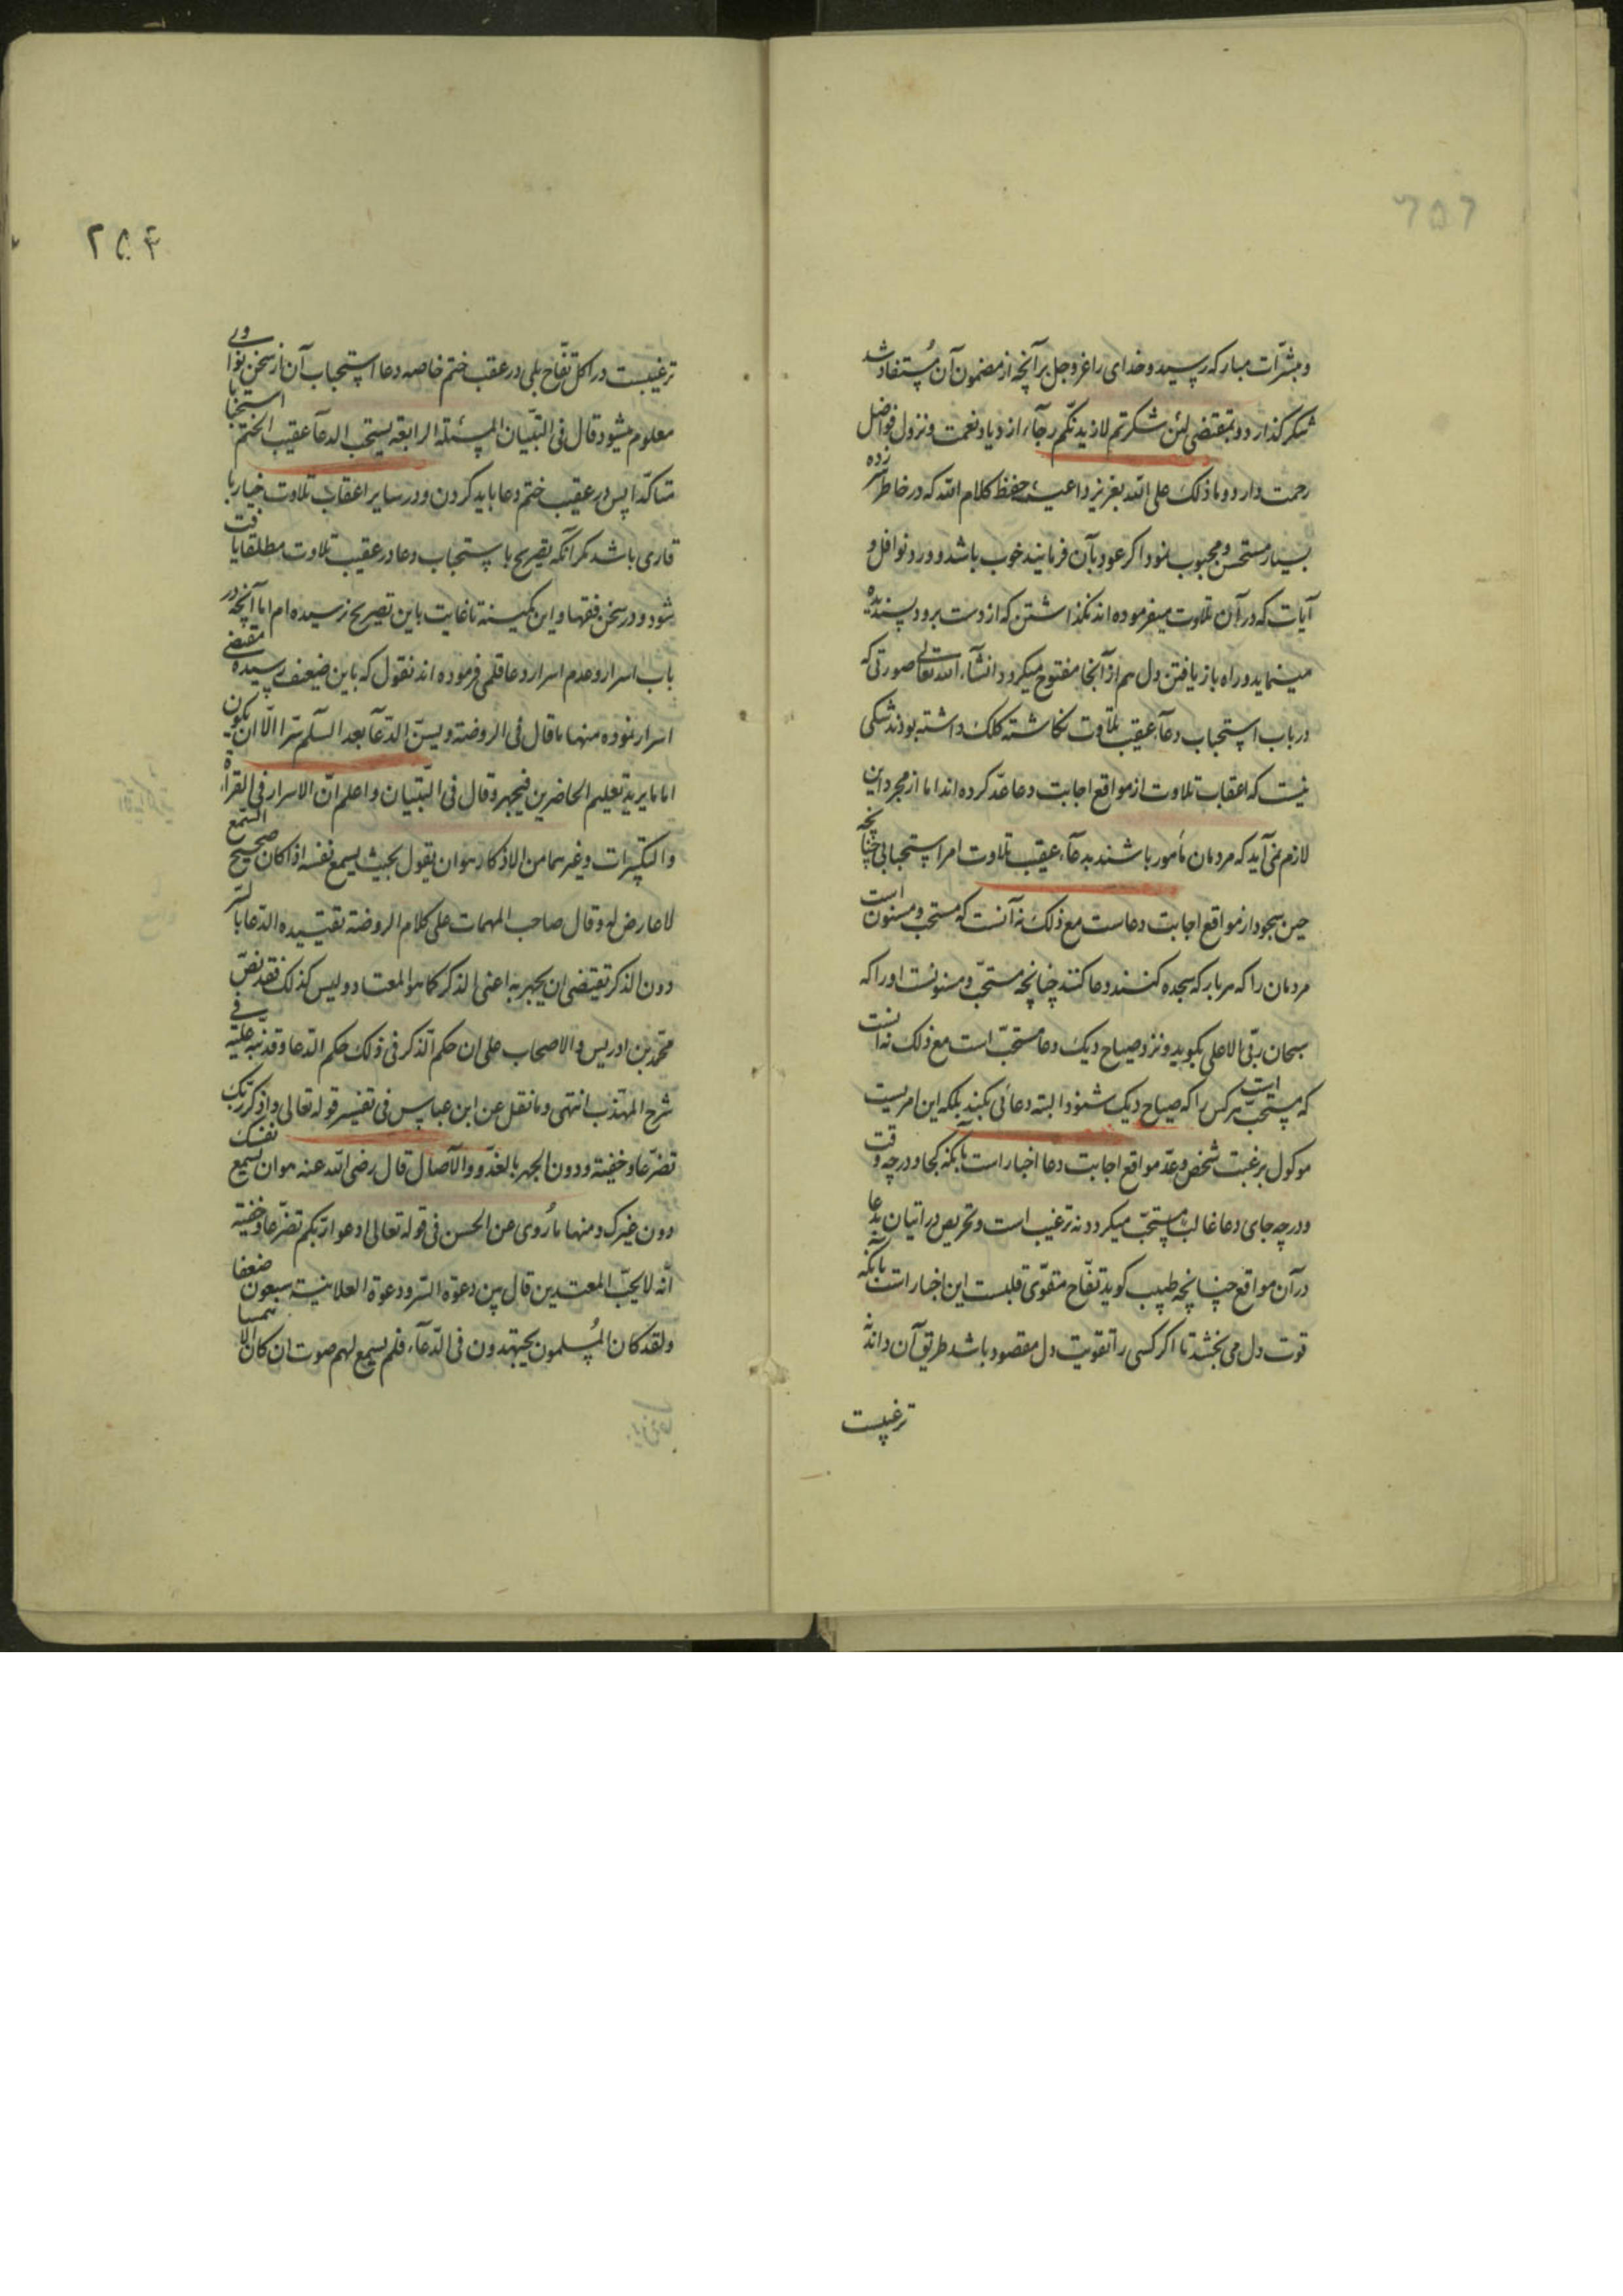 و مبشّرات مبارکه رسید و خدای را عزّ و جل بر آنچه از مضمون آن مُستفاد شد
شکر گذارد و بمقتضی لئن شکرتم لازیدنّکم رجآء ازدیاد نعمت و نزول فواضل
رحمت دارد و ما ذلک علی الله بعزیز داعیهٔ حفظ کلام الله که در خاطر سر زده
بسیار مستحسن و محبوب نمود اکر عود بآن فرمایند خوب باشد و ورد نوافل و
آیات که در آن تلاوت میفرموده اند نکذاشتن که از دست برود پسندیده
مینماید و راه باز یافتن دل هم از آنجا مفتوح میکردد انشآء الله تعالی صورتی که
در باب استحباب دعآء عقیب تلاوت نکاشته کلک داشته بودند شکی
نیست که اعقاب تلاوت از مواقع اجابت دعا عدّ کرده اند اما از مجرد این
لازم نمی آید که مردمان مأمور باشند بدعآء عقیب تلاوت امر استحبابی چنانچه
حین سجود از مواقع اجابت دعاست مع ذلک نه آنست که مستحب و مسنون است
مردمان را که هر بار که سجده کنند دعا کنند چنانچه مستحبّ و مسنونست او را که
سبحان ربّی الاعلی بکوید و نزد صیاح دیک دعا مستحبّ است مع ذلک نه آنست
که مستحبّ است هر کس را که صیاح دیک شنود البته دعائی بکند بلکه این امریست
موکول برغبت شخص و عدّ مواقع اجابت دعا اخبار است بآنکه کجا و در چه وقت
و در چه جای دعا غالب مستجب میکردد نه ترغیب است و تحریص در اتیان بدعا
در آن مواقع چنانچه طبیب کوید تفّاح مقوّی قلبست این اخبار است بآنکه
قوت دل می بخشد تا اکر کسی را تقویت دل مقصود باشد طریق آن داند نه
ترغیبست
۲۵۴
ترغیبست در اکل تفّاح بلی در عقب ختم خاصه دعا استحباب آن از سخن نواوی
معلوم میشود قال فی التبیان المسئلة الرابعة یستحب الدعآء عقیب الختم استحبابا
متاکدّا پس در عقیب ختم دعا باید کردن و در سایر اعقاب تلاوت خیار با
قاری باشد مکر آنکه تصریح باستحباب دعا در عقیب تلاوت مطلقا یافت
شود و در سخن فقها و این کمینه تا غایت باین تصریح نرسیده ام اما آنچه در
باب اسرار و عدم اسرار دعا قلمی فرموده اند نقول که باین ضعیف رسیده مقتضی
اسرار نموده منها ما قال فی الروضة و یسنّ الدّعآء بعد السّلام سرّا الّا ان یکون
اماما یرید تعلیم الحاضرین فیجهر و قال فی التّبیان و اعلم انّ الاسرار فی القراءة
و التکبیرات و غیرهما من الاذکار هو ان یقول بحیث یسمع نفسه اذا کان صحیح السّمع
لا عارض له و قال صاحب المهمات علی کلام الروضة تقییده الدّعا بالسّر
دون الذکر تقتضی ان یجهر به اعنی الذکر کما هو المعتاد و لیس کذلک فقد نصّ
محمّد بن ادریس و الاصحاب علی ان حکم الذّکر فی ذلک حکم الدّعا و قد نبّه علیه فی
شرح المهذّب انتهی و ما نقل عن ابن عباس فی تفسیر قوله تعالی و اذکر ربّک
تضرّعا و خفیة و دون الجهر بالغدّو و الآصال قال رضی الله عنه هو ان تسمع نفسک
دون غیرک و منها ما رُوی عن الحسن فی قوله تعالی ادعوا ربّکم تضرّعا و خفیة
انّه لا یحبّ المعتدین قال بین دعوة السّر و دعوة العلانیة سبعون ضعفا
و لقد کان المُسلمون یجتهدون فی الدّعآء فلم یسمع لهم صوت ان کان الا همسا